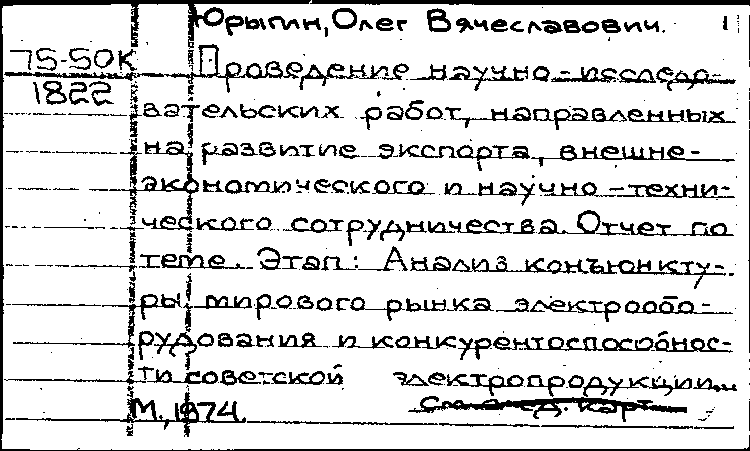 Юрыгин, Олег Вячеславович. 1
75-50К
1822
Проведение научно-исследо-
вательских работ, направленных
на развитие экспорта, внешне-
экономического и научно-техни-
ческого сотрудничества. Отчет по
теме. Этап: Анализ конъюнкту-
ры мирового рынка электрообо-
рудования и конкурентоспособнос-
ти советской электропродукции..
М., 1974. карт